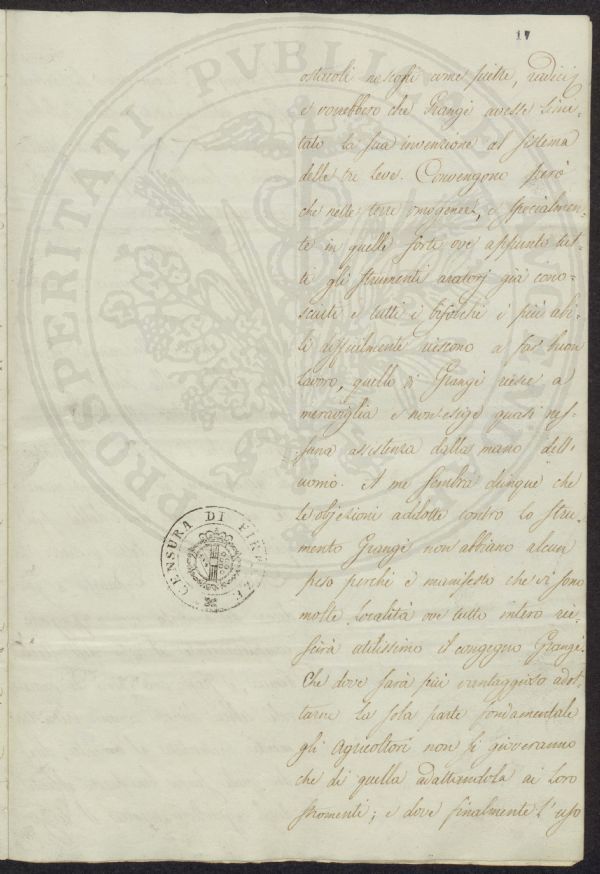 17
ostacoli nascosti come pietre, radici,
e vorrebbero che Grangé avesse limi-
tato la sua invenzione al sistema
delle tre leve. Convengono però
che nelle terre omogenee, e specialmen-
te in quelle forti ove appunto tut-
ti gli strumenti aratorj già cono-
sciuti e tutti i bifolchi i più abi-
li difficilmente riescono a far buon
lavoro, quello di Grangé riesce a
meraviglia e non esige quasi nes-
suna assistenza dalla mano dell'
uomo. A me sembra dunque che
le objezioni addotte contro lo stru-
mento Grangé non abbiano alcun
peso perché è manifesto che vi sono
molte località ove tutto intero rie-
scirà utilissimo il congegno Grangé.
Che dove sarà più vantaggioso adot-
tarne la sola parte fondamentale
gli Agricoltori non si gioveranno
che di quella adattandola ai loro
stromenti; e dove finalmente l'uso
CENSURA DI FIRENZE
PROSPERITATI PUBLICAE